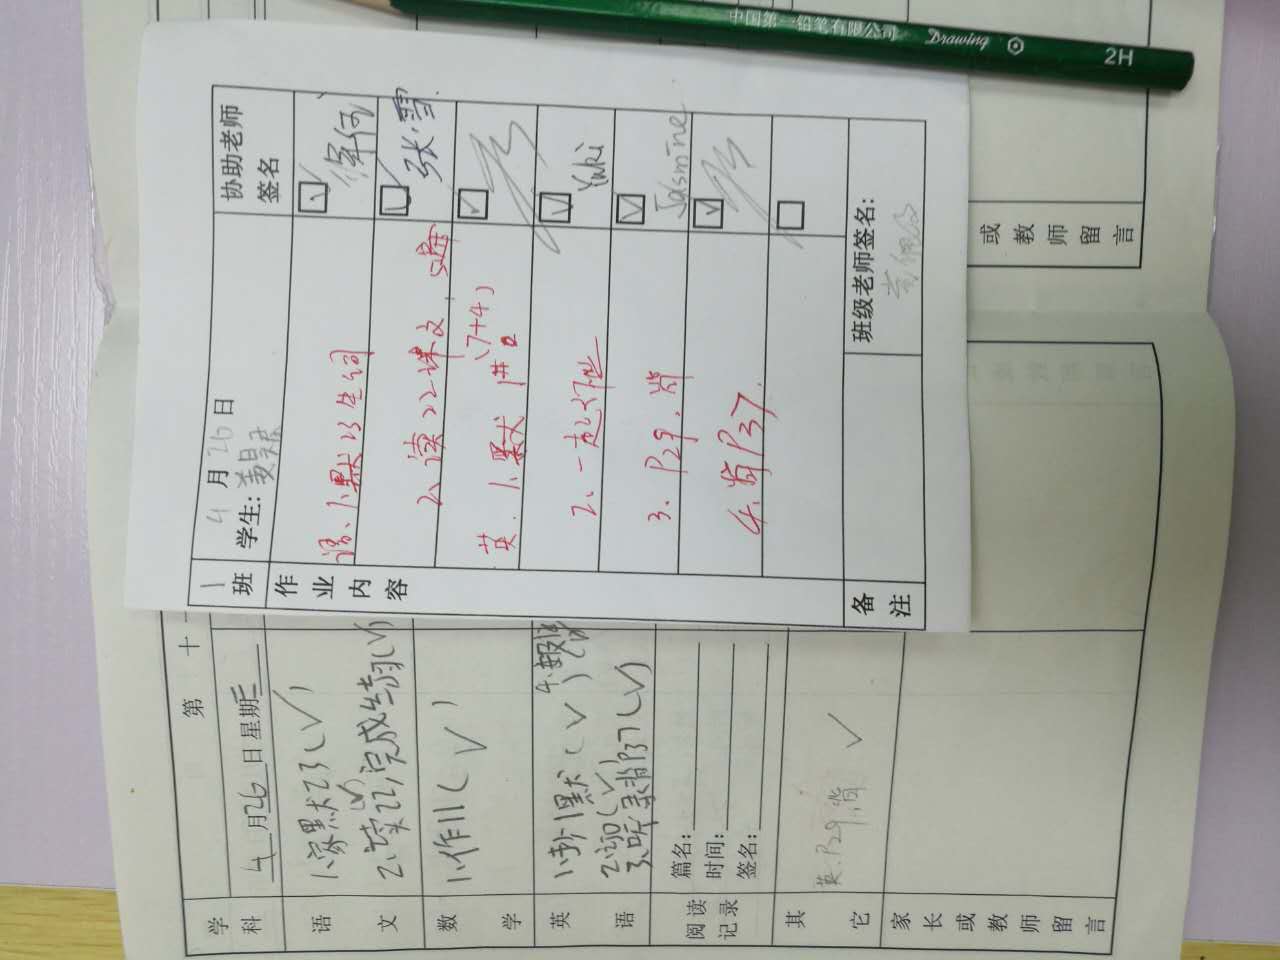 中国第一铅笔有限公司 Drawing 2H
1 班
4 月 26 日
学生:
协助老师
签名
作业内容
语、1.默23生词
2、读22课文
张雪
英.1.默 1#
(7+4)
2、一起作业
Yuki
3、P29.背
Jasmine
4.背P37.
备注
班级老师签名:
或教师留言
第 十
学科
4 月 26 日 星期三
语文
1.家默23(√)
2.读22,完成练习(√)
数学
1.作11(√)
英语
1.订 1默(√)
3.听录背P37(√)
阅读记录
篇名:
时间:
签名:
其它
英.P29.背 √
家长或教师留言